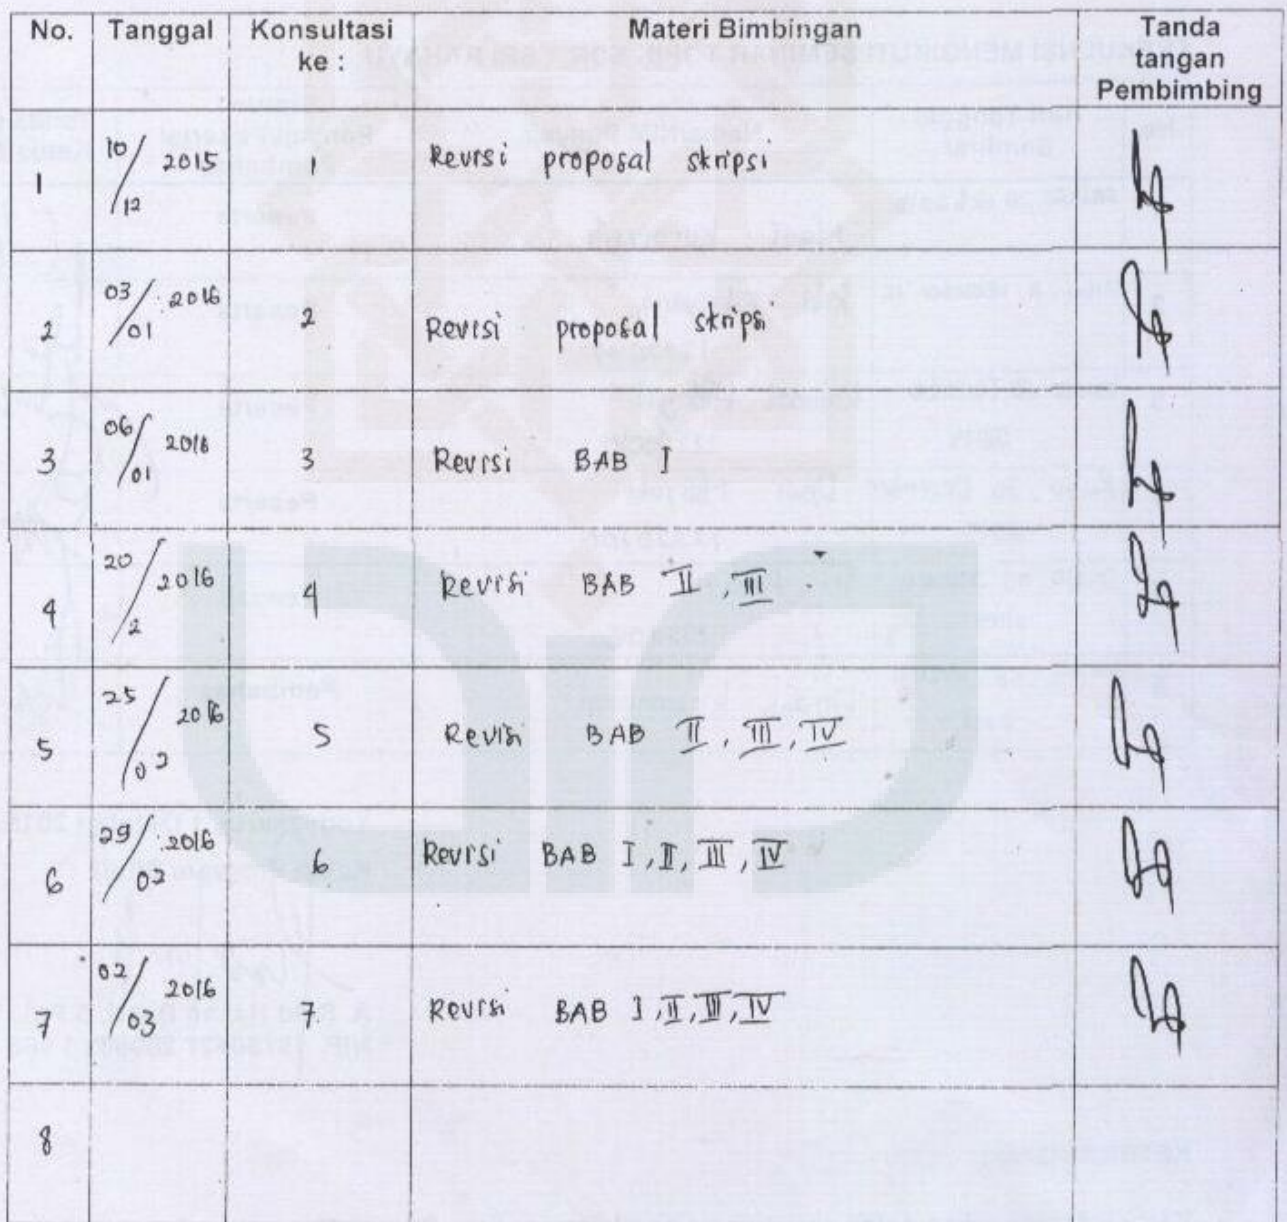 No. Tanggal Konsultasi ke : Materi Bimbingan Tanda tangan Pembimbing
1 10/12 2015 1 Revisi proposal skripsi
2 03/01 2016 2 Revisi proposal skripsi
3 06/01 2016 3 Revisi BAB I
4 20/2 2016 4 Revisi BAB II, III
5 25/02 2016 5 Revisi BAB II, III, IV
6 29/02 2016 6 Revisi BAB I, II, III, IV
7 02/03 2016 7 Revisi BAB I, II, III, IV
8